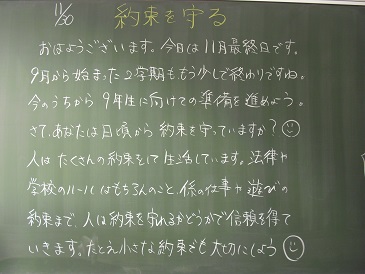 11/30 約束を守る
おはようございます。今日は11月最終日です。
9月から始まった2学期ももう少しで終わりですね。
今のうちから9年生に向けての準備を進めよう。
さて、あなたは日頃から約束を守っていますか？
人はたくさんの約束をして生活しています。法律や
学校のルールはもちろんのこと、係の仕事や遊びの
約束まで、人は約束を守れるかどうかで信頼を得て
いきます。たとえ小さな約束でも大切にしよう